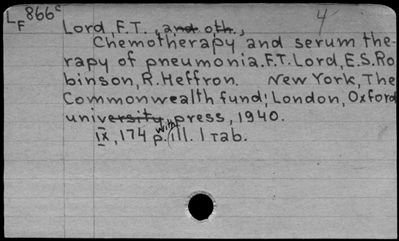 LF 866c
4
Lord, F.T., and oth.,
Chemotherapy and serum the-
rapy of pneumonia. F.T. Lord, E.S. Ro
binson, R. Heffron. New York, The
Commonwealth fund; London, Oxford
university press, 1940.
IX, 174 p. with ill. 1 tab.